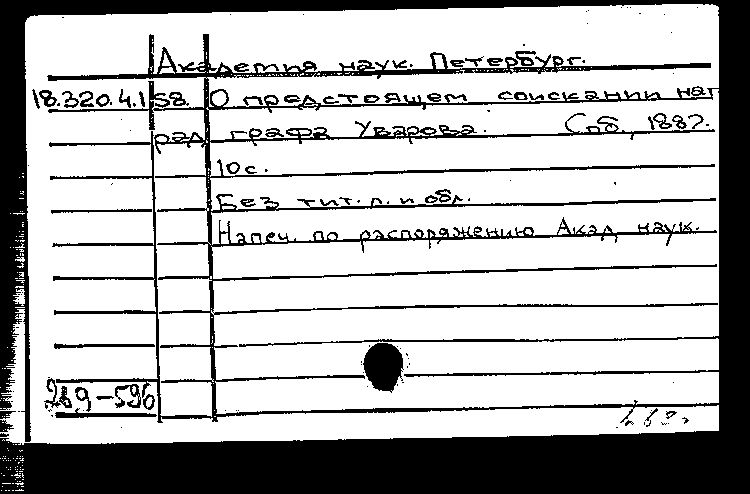 Академия наук. Петербург.
18.320.4.158. О предстоящем соискании наг
рад графа Уварова. Спб., 1887.
10 с.
Без тит. л. и обл.
Напеч. по распоряжению Акад. наук.
289-596